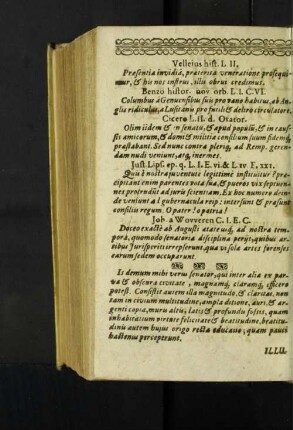 Velleius hist. L. II.
Præsentia invidia, præterita veneratione prosequi-
mur, & his nos instrui, illis obrui credimus.
Benzo histor. nov. orb. L. I. C. VI.
Columbus à Genuensibus suis pro vano habitus, ab An-
glis ridiculus, a Lusitanis pro futili & deliro circulatore.
Cicero L. II. d. Orator.
Olim iidem & in senatu, & apud populū, & in caus-
sis amicorum, & domi & militia consilium suum fidemq;
præstabant. Sed nunc contra pleriq; ad Remp. geren-
dam nudi veniunt, atq; inermes.
Just. Lips. ep. q. L. I. E. vi. & L. iv. E. xxi.
Quis è nostra juventute legitimè instituitur? præ-
cipitant enim parentes vota sua, & pueros vix septuen-
nes protrudūt ad juris scientiam. Ex hoc numero dein-
de veniunt ad gubernacula reip: intersunt & præsunt
consiliis regum. O pater! o patria!
Joh. a Wovveren C. I. E. C.
Doceo exactè ab Augusti ætate usq; ad nostra tem-
pora, quomodo senatoria disciplina perijt, quibus ar-
tibus Jurisperiti irrepserunt, qua sola artes forenses
earum sedem occuparunt.
Is demum mihi verus senator, qui inter alia ex par-
va & obscura civitate, magnamq; claramq; efficere
potest. Consistit autem illa magnitudo, & claritas, non
tam in civium multitudine, ampla ditione, auri, & ar-
genti copia, muris altis, latis & profundis fossis, quam
in habitatium virente felicitate & beatitudine, beatitu-
dinis autem hujus origo recta educatio, quam pauci
hactenus perceperunt.
ILLU.